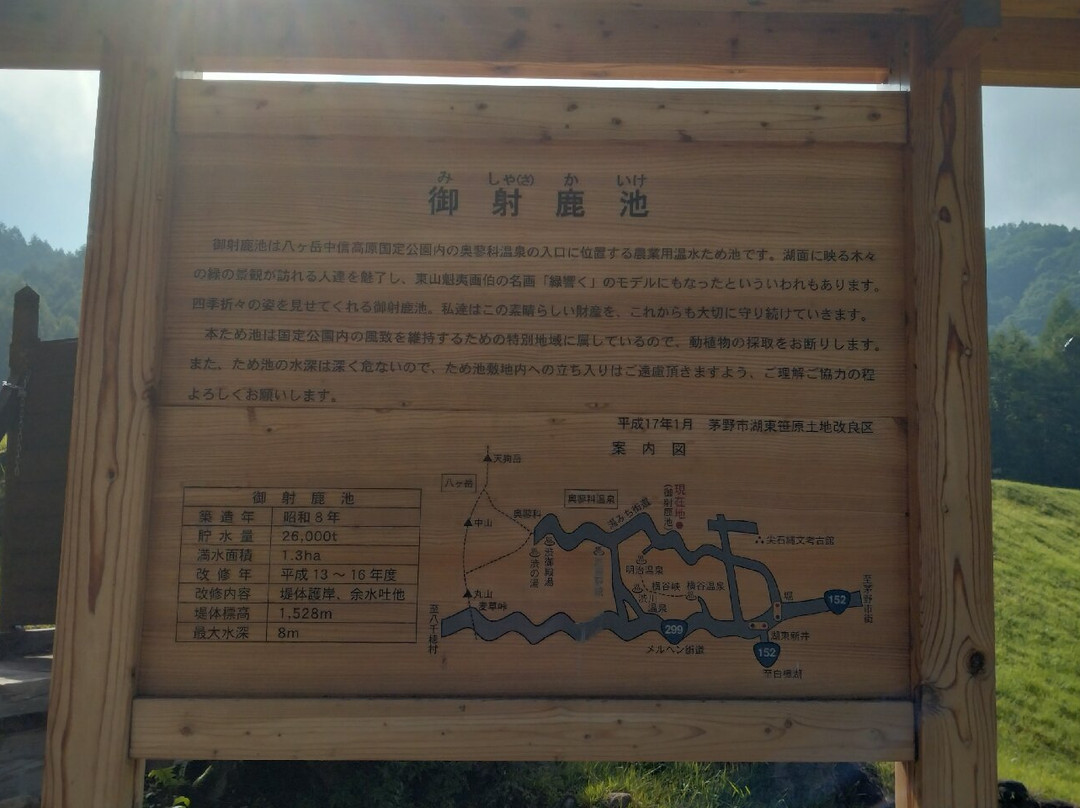 み しゃ(さ) か いけ
御射鹿池
御射鹿池は八ヶ岳中信高原国定公園内の奥蓼科温泉の入口に位置する農業用温水ため池です。湖面に映る木々
の緑の景観が訪れる人達を魅了し、東山魁夷画伯の名画「緑響く」のモデルにもなったといういわれもあります。
四季折々の姿を見せてくれる御射鹿池。私達はこの素晴らしい財産を、これからも大切に守り続けていきます。
本ため池は国定公園内の風致を維持するための特別地域に属しているので、動植物の採取をお断りします。
また、ため池の水深は深く危ないので、ため池敷地内への立ち入りはご遠慮頂きますよう、ご理解ご協力の程
よろしくお願いします。
平成17年1月 茅野市湖東笹原土地改良区
案内図
御射鹿池
築造年 昭和8年
貯水量 26,000t
満水面積 1.3ha
改修年 平成13～16年度
改修内容 堤体護岸、余水吐他
堤体標高 1,528m
最大水深 8m
天狗岳
八ヶ岳
中山
丸山
麦草峠
至八千穂村
奥蓼科
渋の湯
渋御殿湯
奥蓼科温泉
湯みち街道
現在地
(御射鹿池)
尖石縄文考古館
明治温泉
横谷峡
横谷温泉
渋川
温泉
堀
152
至茅野市街
299
湖東新井
メルヘン街道
152
至白樺湖